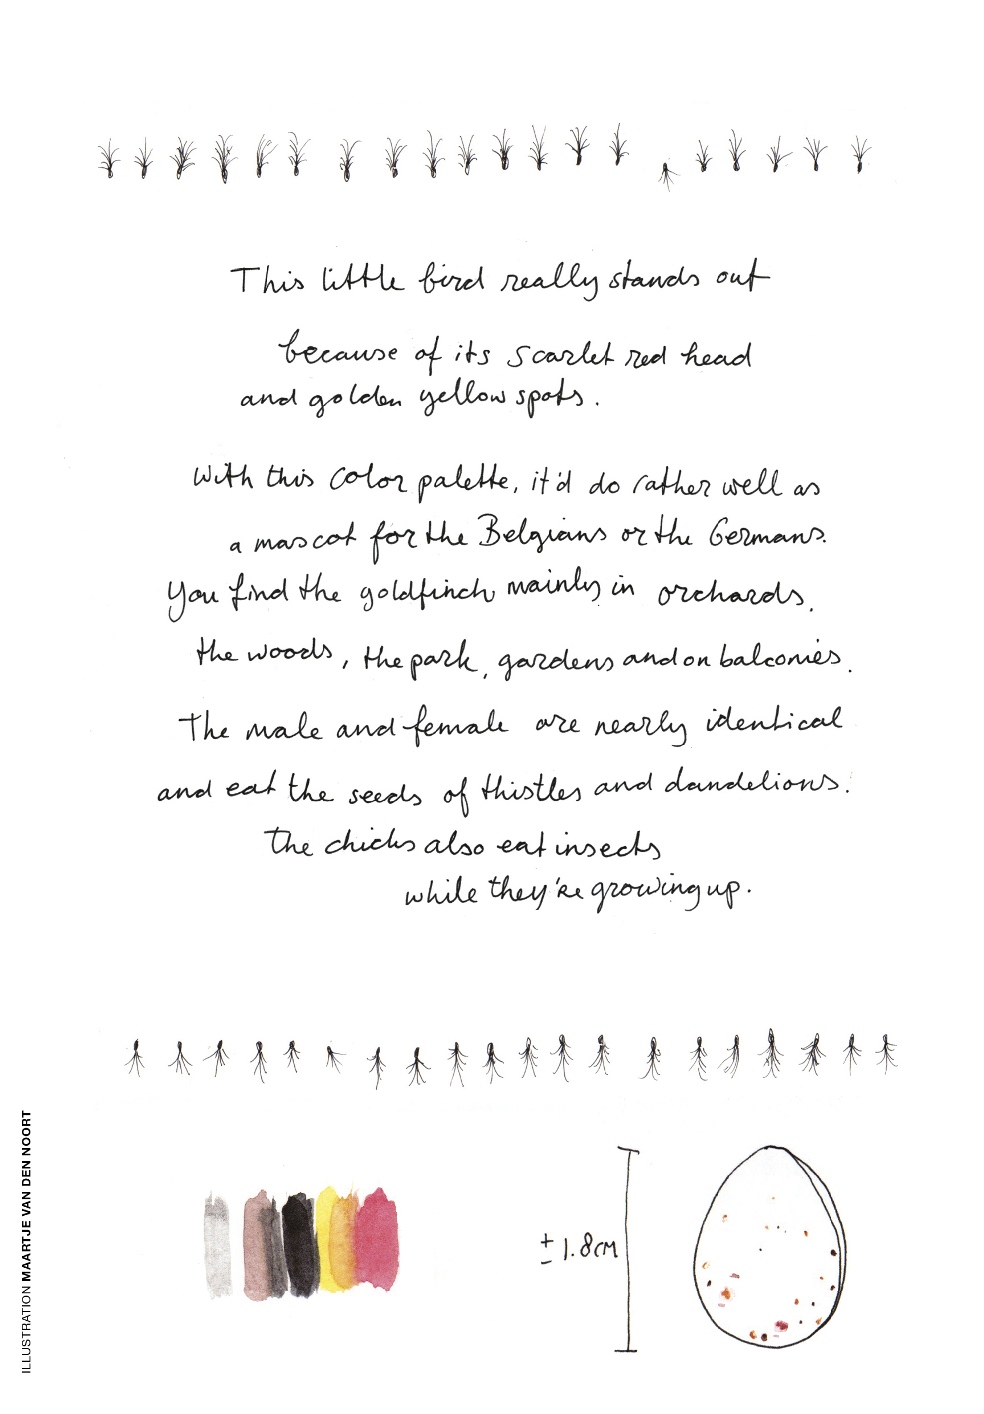 This little bird really stands out
because of its scarlet red head
and golden yellow spots.
With this color palette, it'd do rather well as
a mascot for the Belgians or the Germans.
You find the goldfinch mainly in orchards,
the woods, the park, gardens and on balconies.
The male and female are nearly identical
and eat the seeds of thistles and dandelions.
The chicks also eat insects
while they're growing up.
± 1.8 cm
ILLUSTRATION MAARTJE VAN DEN NOORT